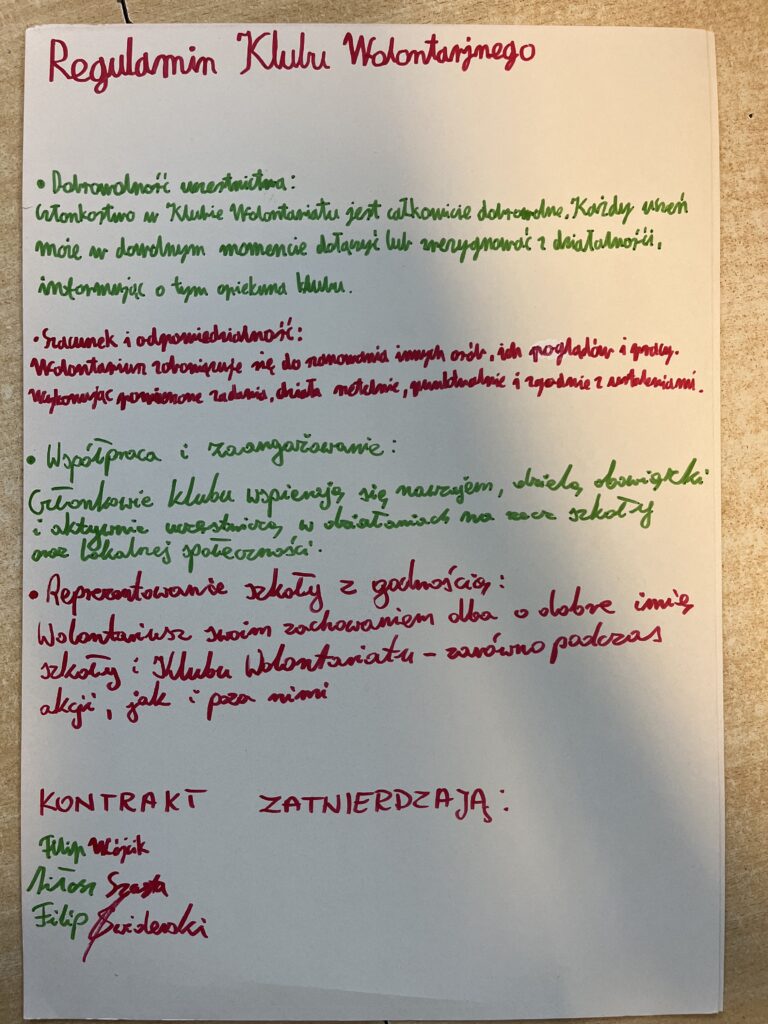 Regulamin Klubu Wolontarjnego
• Dobrowolność uczestnictwa:
Członkostwo w Klubie Wolontariatu jest całkowicie dobrowolne. Każdy uczeń
może w dowolnym momencie dołączyć lub zrezygnować z działalności,
informując o tym opiekuna klubu.
• Szacunek i odpowiedzialność:
Wolontariusz zobowiązuje się do szanowania innych osób, ich poglądów i pracy.
Wykonując powierzone zadania, działa rzetelnie, punktualnie i zgodnie z ustaleniami.
• Współpraca i zaangażowanie:
Członkowie klubu wspierają się nawzajem, dzielą obowiązki
i aktywnie uczestniczą w działaniach na rzecz szkoły
oraz lokalnej społeczności.
• Reprezentowanie szkoły z godnością:
Wolontariusz swoim zachowaniem dba o dobre imię
szkoły i Klubu Wolontariatu – zarówno podczas
akcji, jak i poza nimi
KONTRAKT ZATWIERDZAJĄ:
Filip Wójcik
Miłosz
Filip Świderski